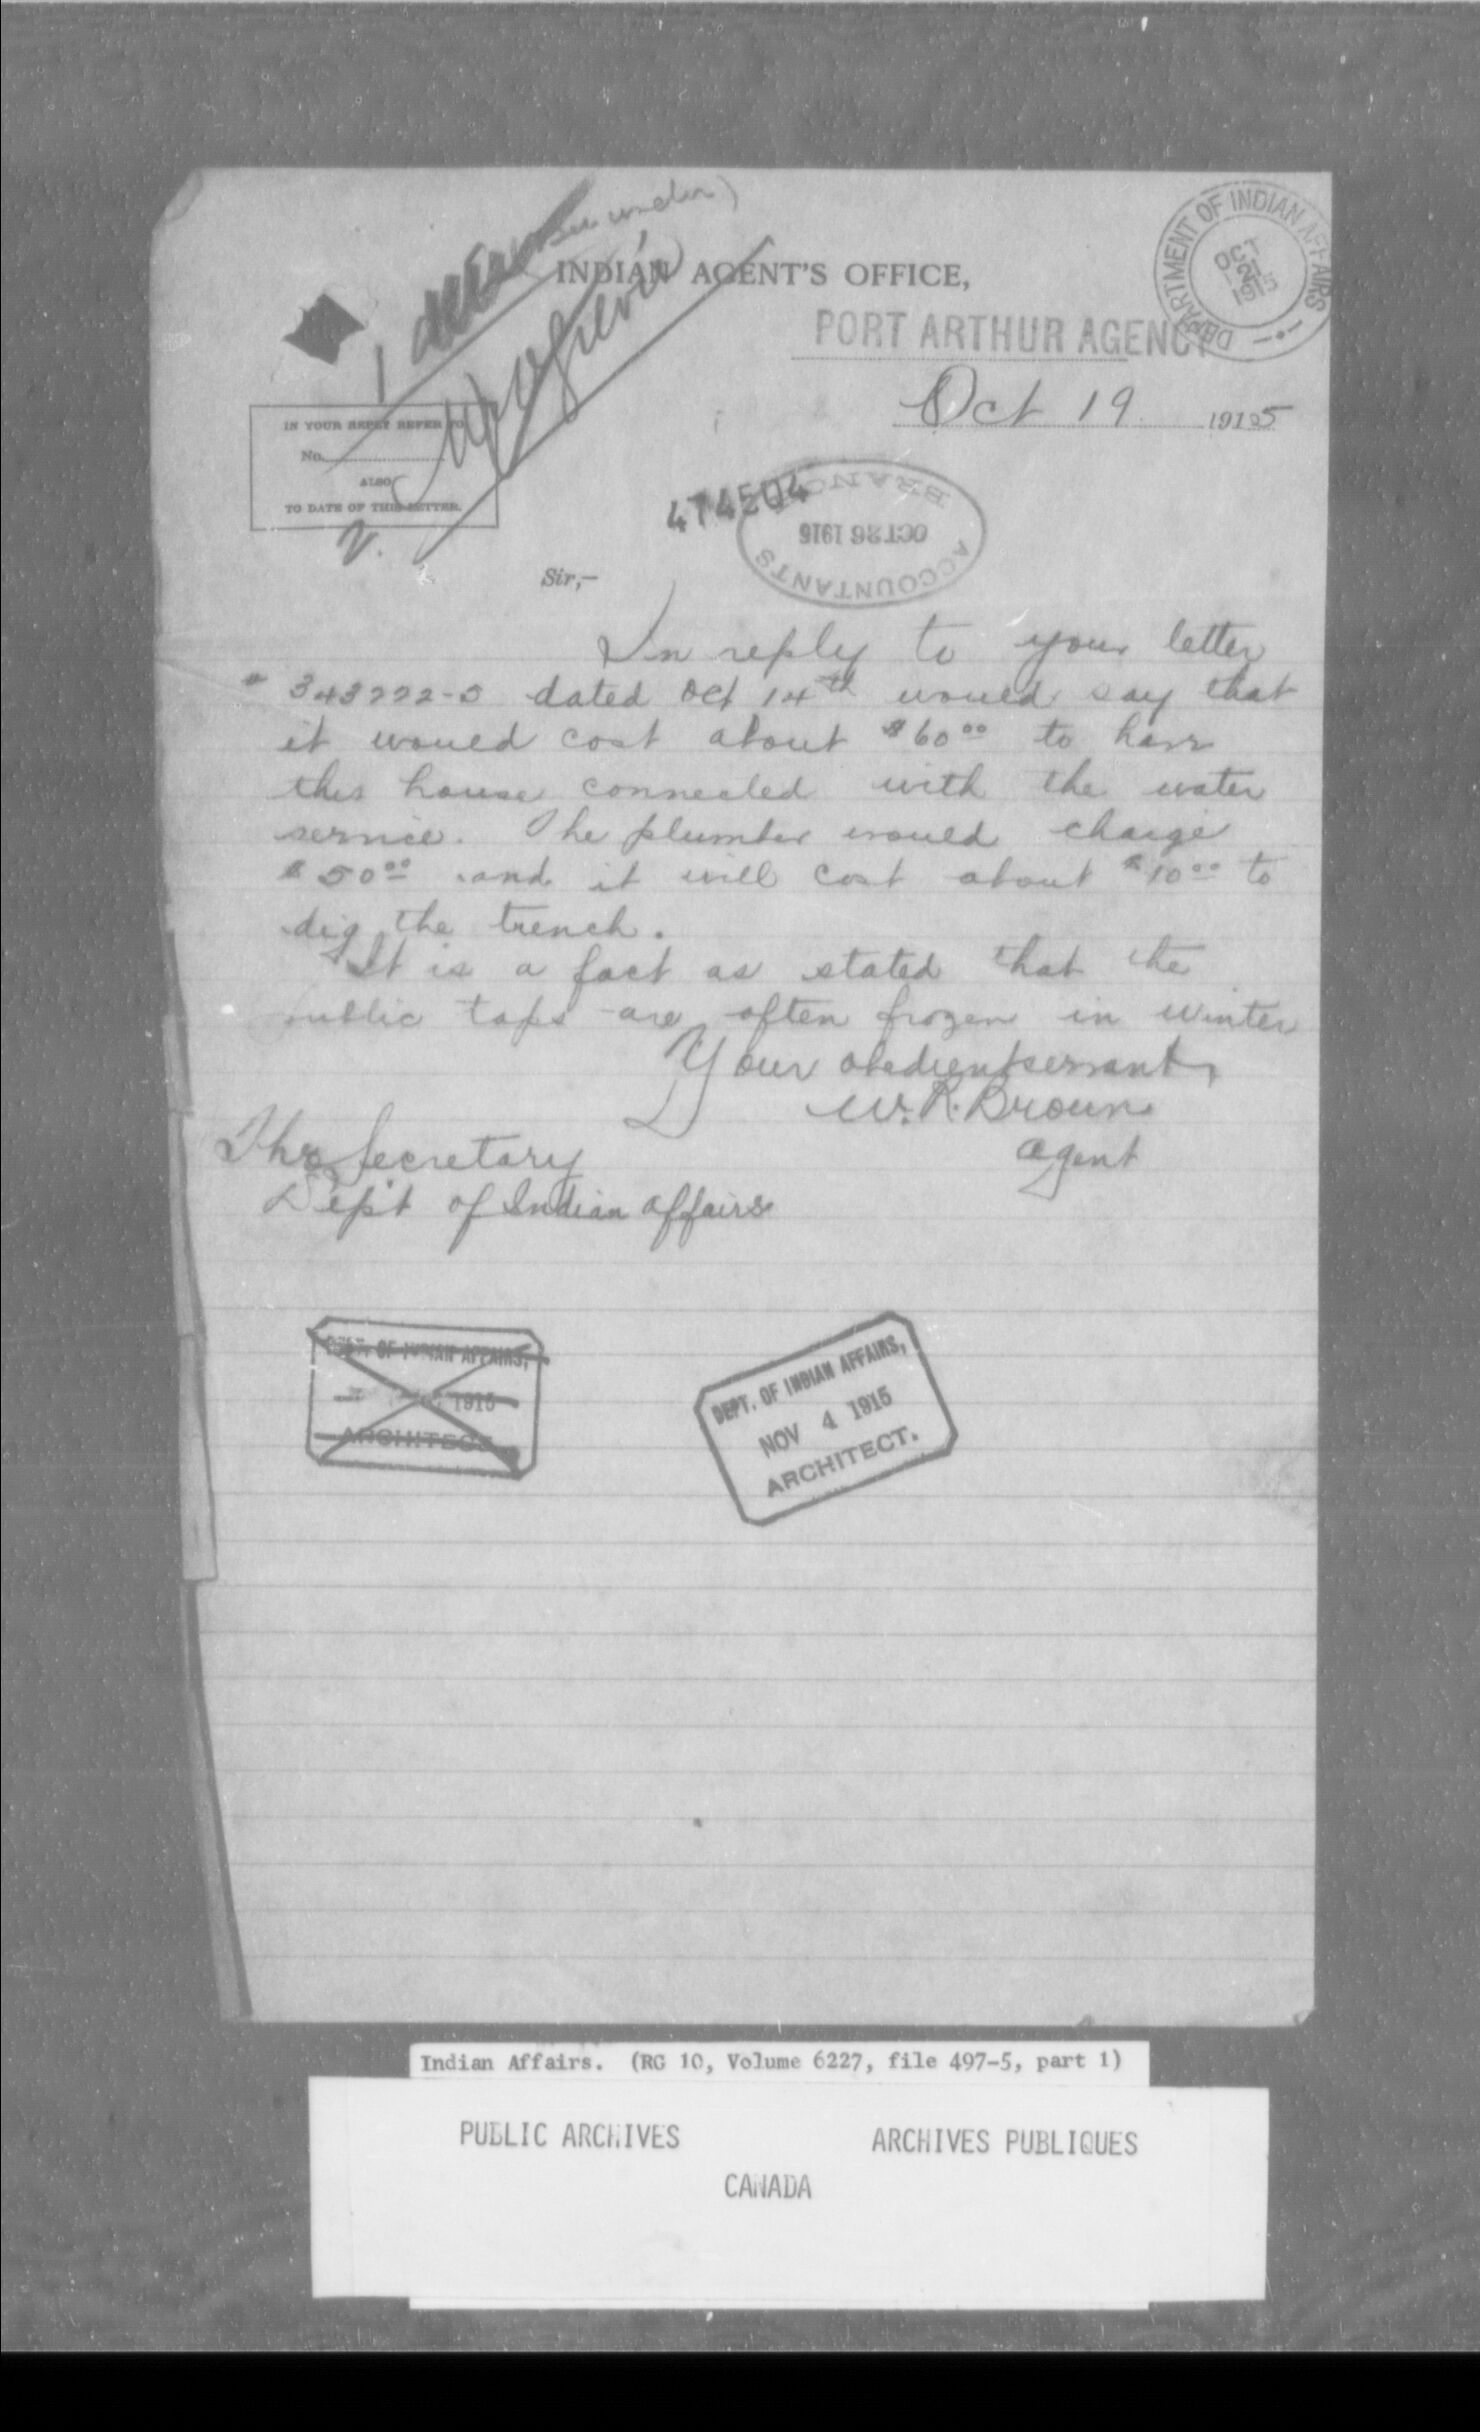 INDIAN AGENT'S OFFICE,
DEPARTMENT OF INDIAN AFFAIRS
OCT 21 1915
PORT ARTHUR AGENCY
Oct 19 1915
IN YOUR REPLY REFER TO
No.
ALSO
TO DATE OF THIS LETTER.
474504
ACCOUNTANTS BRANCH
OCT 26 1915
Sir,-
In reply to your letter
# 343222-5 dated Oct 14th would say that
it would cost about $60.00 to have
this house connected with the water
service. The plumber would charge
$50.00 and it will cost about $10.00 to
dig the trench.
It is a fact as stated that the
public taps are often frozen in winter
Your obedient servant,
W. R. Brown
agent
The Secretary
Dep't of Indian affairs
DEPT. OF INDIAN AFFAIRS,
1915
ARCHITECT.
DEPT. OF INDIAN AFFAIRS,
NOV 4 1915
ARCHITECT.
Indian Affairs. (RG 10, Volume 6227, file 497-5, part 1)
PUBLIC ARCHIVES ARCHIVES PUBLIQUES
CANADA